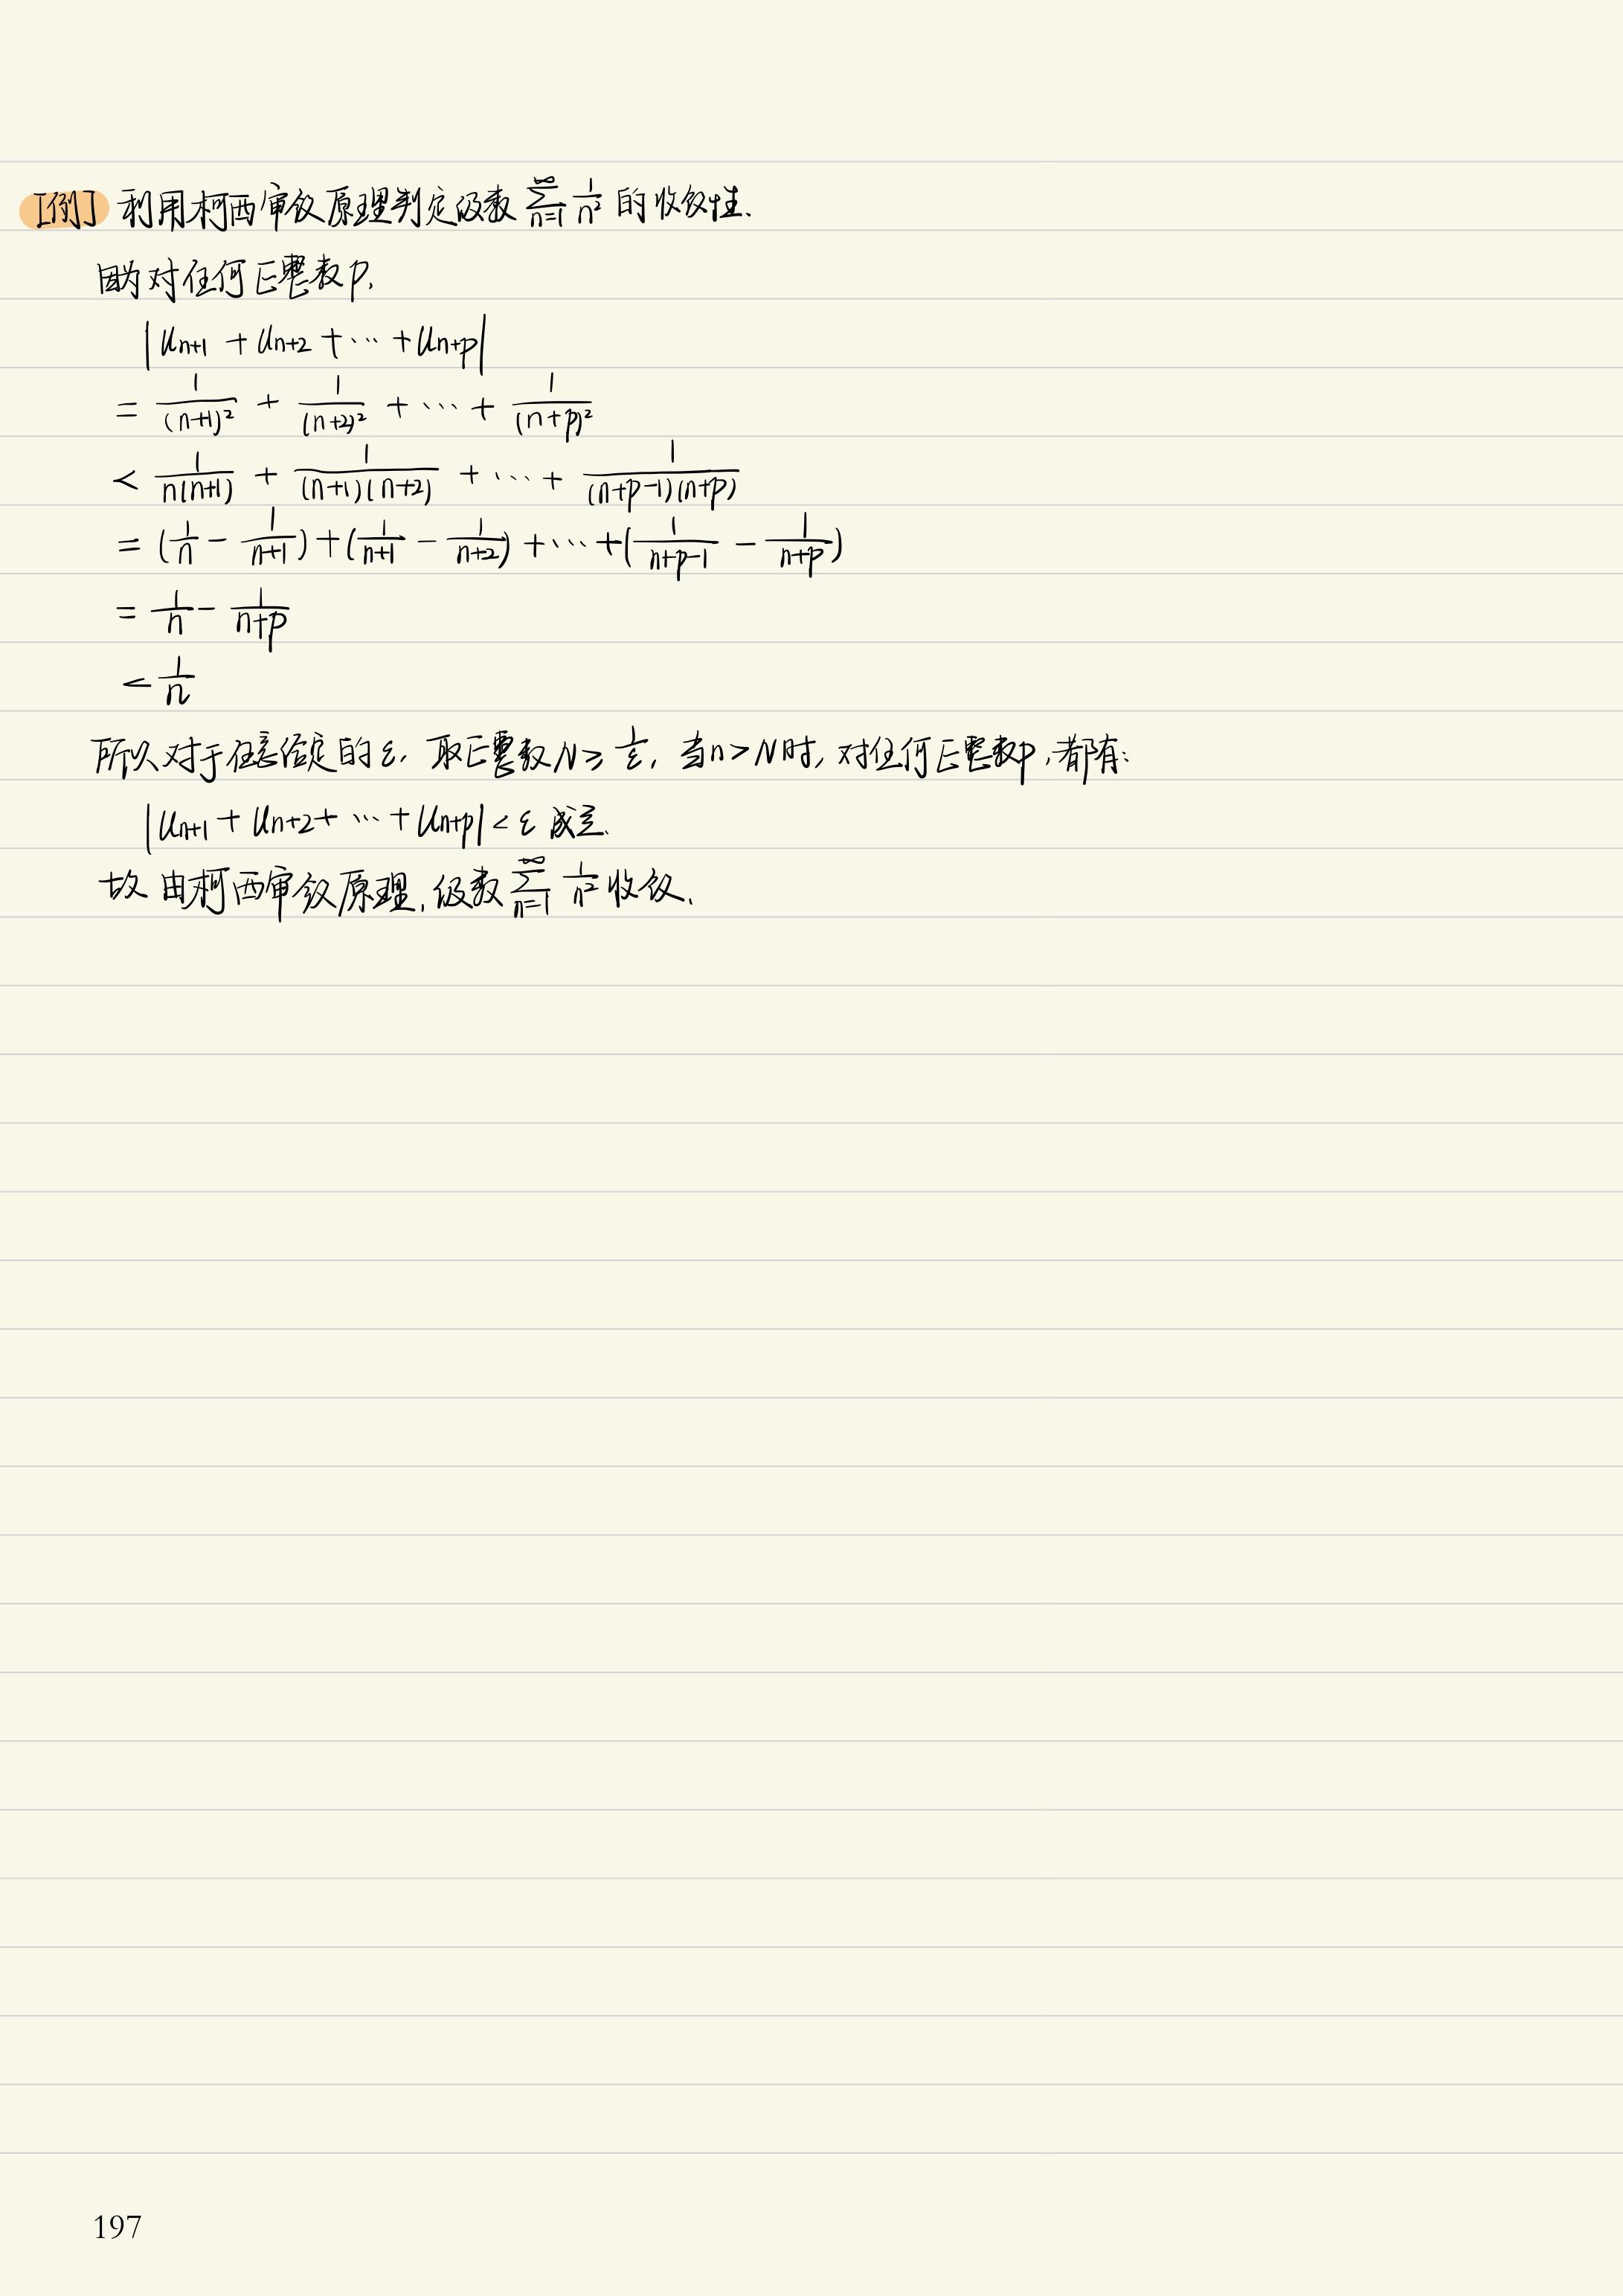 [例] 利用柯西审敛原理判定级数 $\sum_{n=1}^{\infty} \frac{1}{n^2}$ 的收敛性.
因为对任何正整数p,
$|u_{n+1} + u_{n+2} + \cdots + u_{n+p}|$
$= \frac{1}{(n+1)^2} + \frac{1}{(n+2)^2} + \cdots + \frac{1}{(n+p)^2}$
$< \frac{1}{n(n+1)} + \frac{1}{(n+1)(n+2)} + \cdots + \frac{1}{(n+p-1)(n+p)}$
$= (\frac{1}{n} - \frac{1}{n+1}) + (\frac{1}{n+1} - \frac{1}{n+2}) + \cdots + (\frac{1}{n+p-1} - \frac{1}{n+p})$
$= \frac{1}{n} - \frac{1}{n+p}$
$< \frac{1}{n}$
所以对于任意给定的ε, 取正整数 $N \geq \frac{1}{\varepsilon}$, 当n>N时, 对任何正整数p, 都有:
$|u_{n+1} + u_{n+2} + \cdots + u_{n+p}| < \varepsilon$ 成立.
故由柯西审敛原理, 级数 $\sum_{n=1}^{\infty} \frac{1}{n^2}$ 收敛.
197